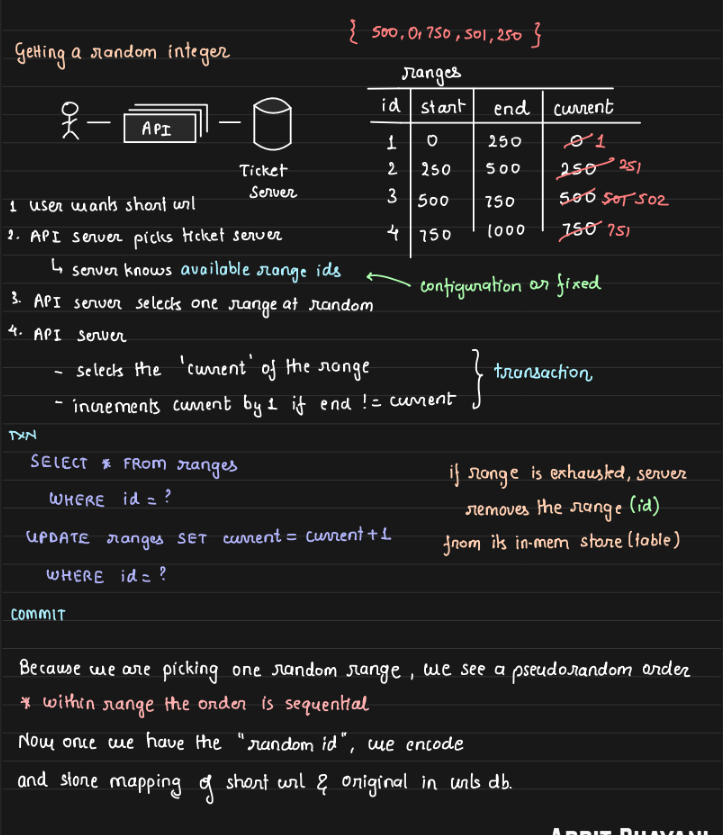 { 500, 0, 750, 501, 250 }
Getting a random integer
ranges
id start end current
1 0 250 0 1
2 250 500 250 251
3 500 750 500 501 502
4 750 1000 750 751
API
Ticket
Server
1 user wants short url
2. API server picks ticket server
↳ server knows available range ids
configuration or fixed
3. API server selects one range at random
4. API server
- selects the 'current' of the range
- increments current by 1 if end != current
transaction
TXN
SELECT * FROM ranges
WHERE id = ?
UPDATE ranges SET current = current + 1
WHERE id = ?
COMMIT
if range is exhausted, server
removes the range (id)
from its in-mem store (table)
Because we are picking one random range, we see a pseudorandom order
* within range the order is sequential
Now once we have the "random id", we encode
and store mapping of short url & original in urls db.
ARPIT BHAYANI